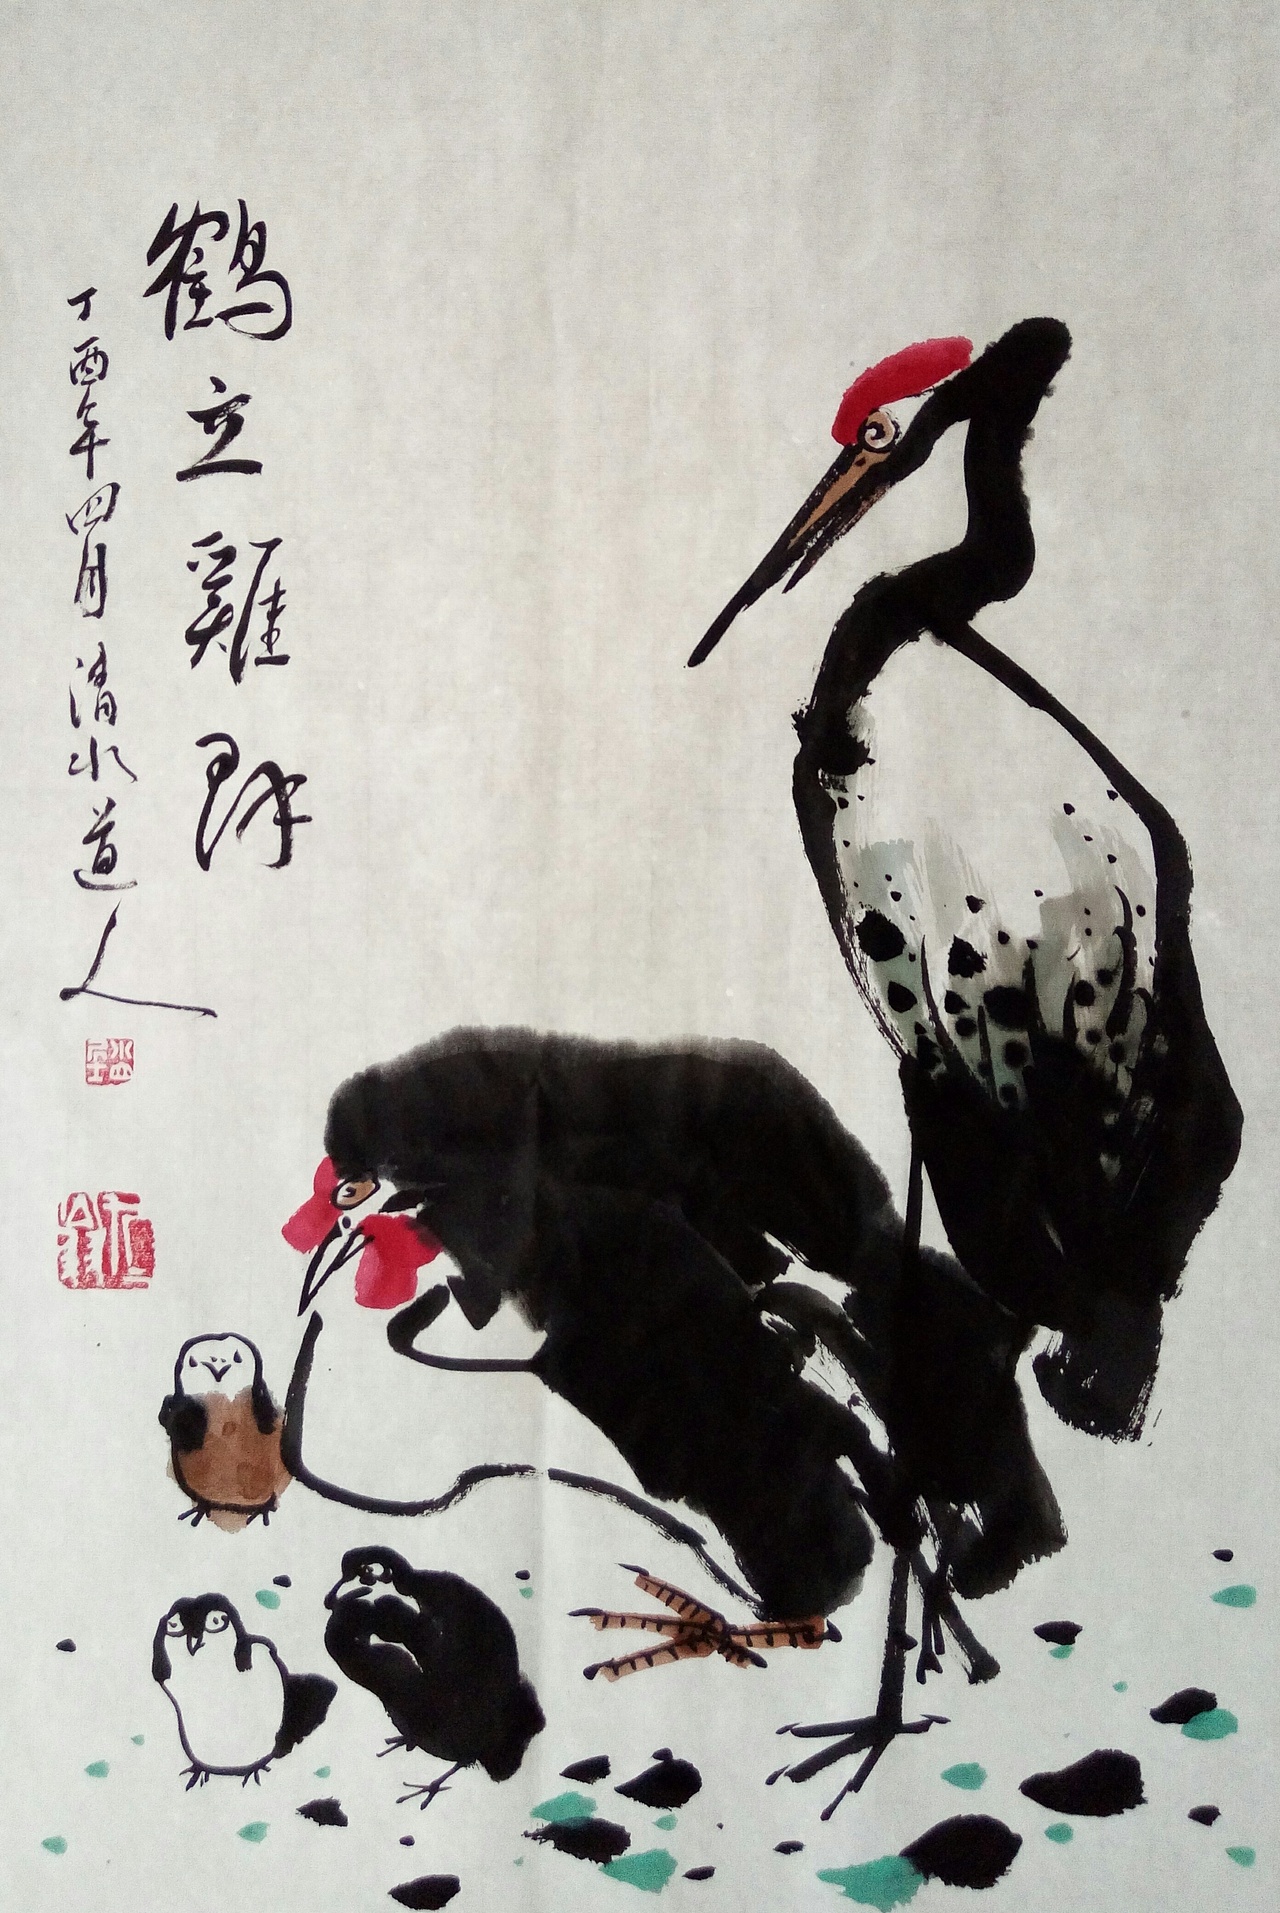 鶴立雞群
丁酉年四月清水道人